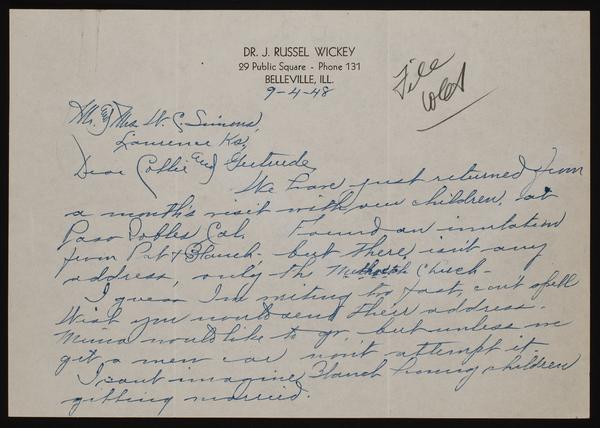 DR. J. RUSSEL WICKEY
29 Public Square - Phone 131
BELLEVILLE, ILL.
9-4-48
File
Mr. and Mrs W. C. Simons,
Lawrence Ks,
Dear Collie and Gertrude,
We have just returned from
a month's visit with our children, at
Paso Robles Cal. Found an invitation
from Pat & Blanch, but there isn't any
address, only the Methodist Church-
I guess I'm writing too fast, can't spell
Wish you would send their address.
Minna would like to go, but unless we
get a new car won't attempt it.
I can't imagine Blanch having children
gitting married.